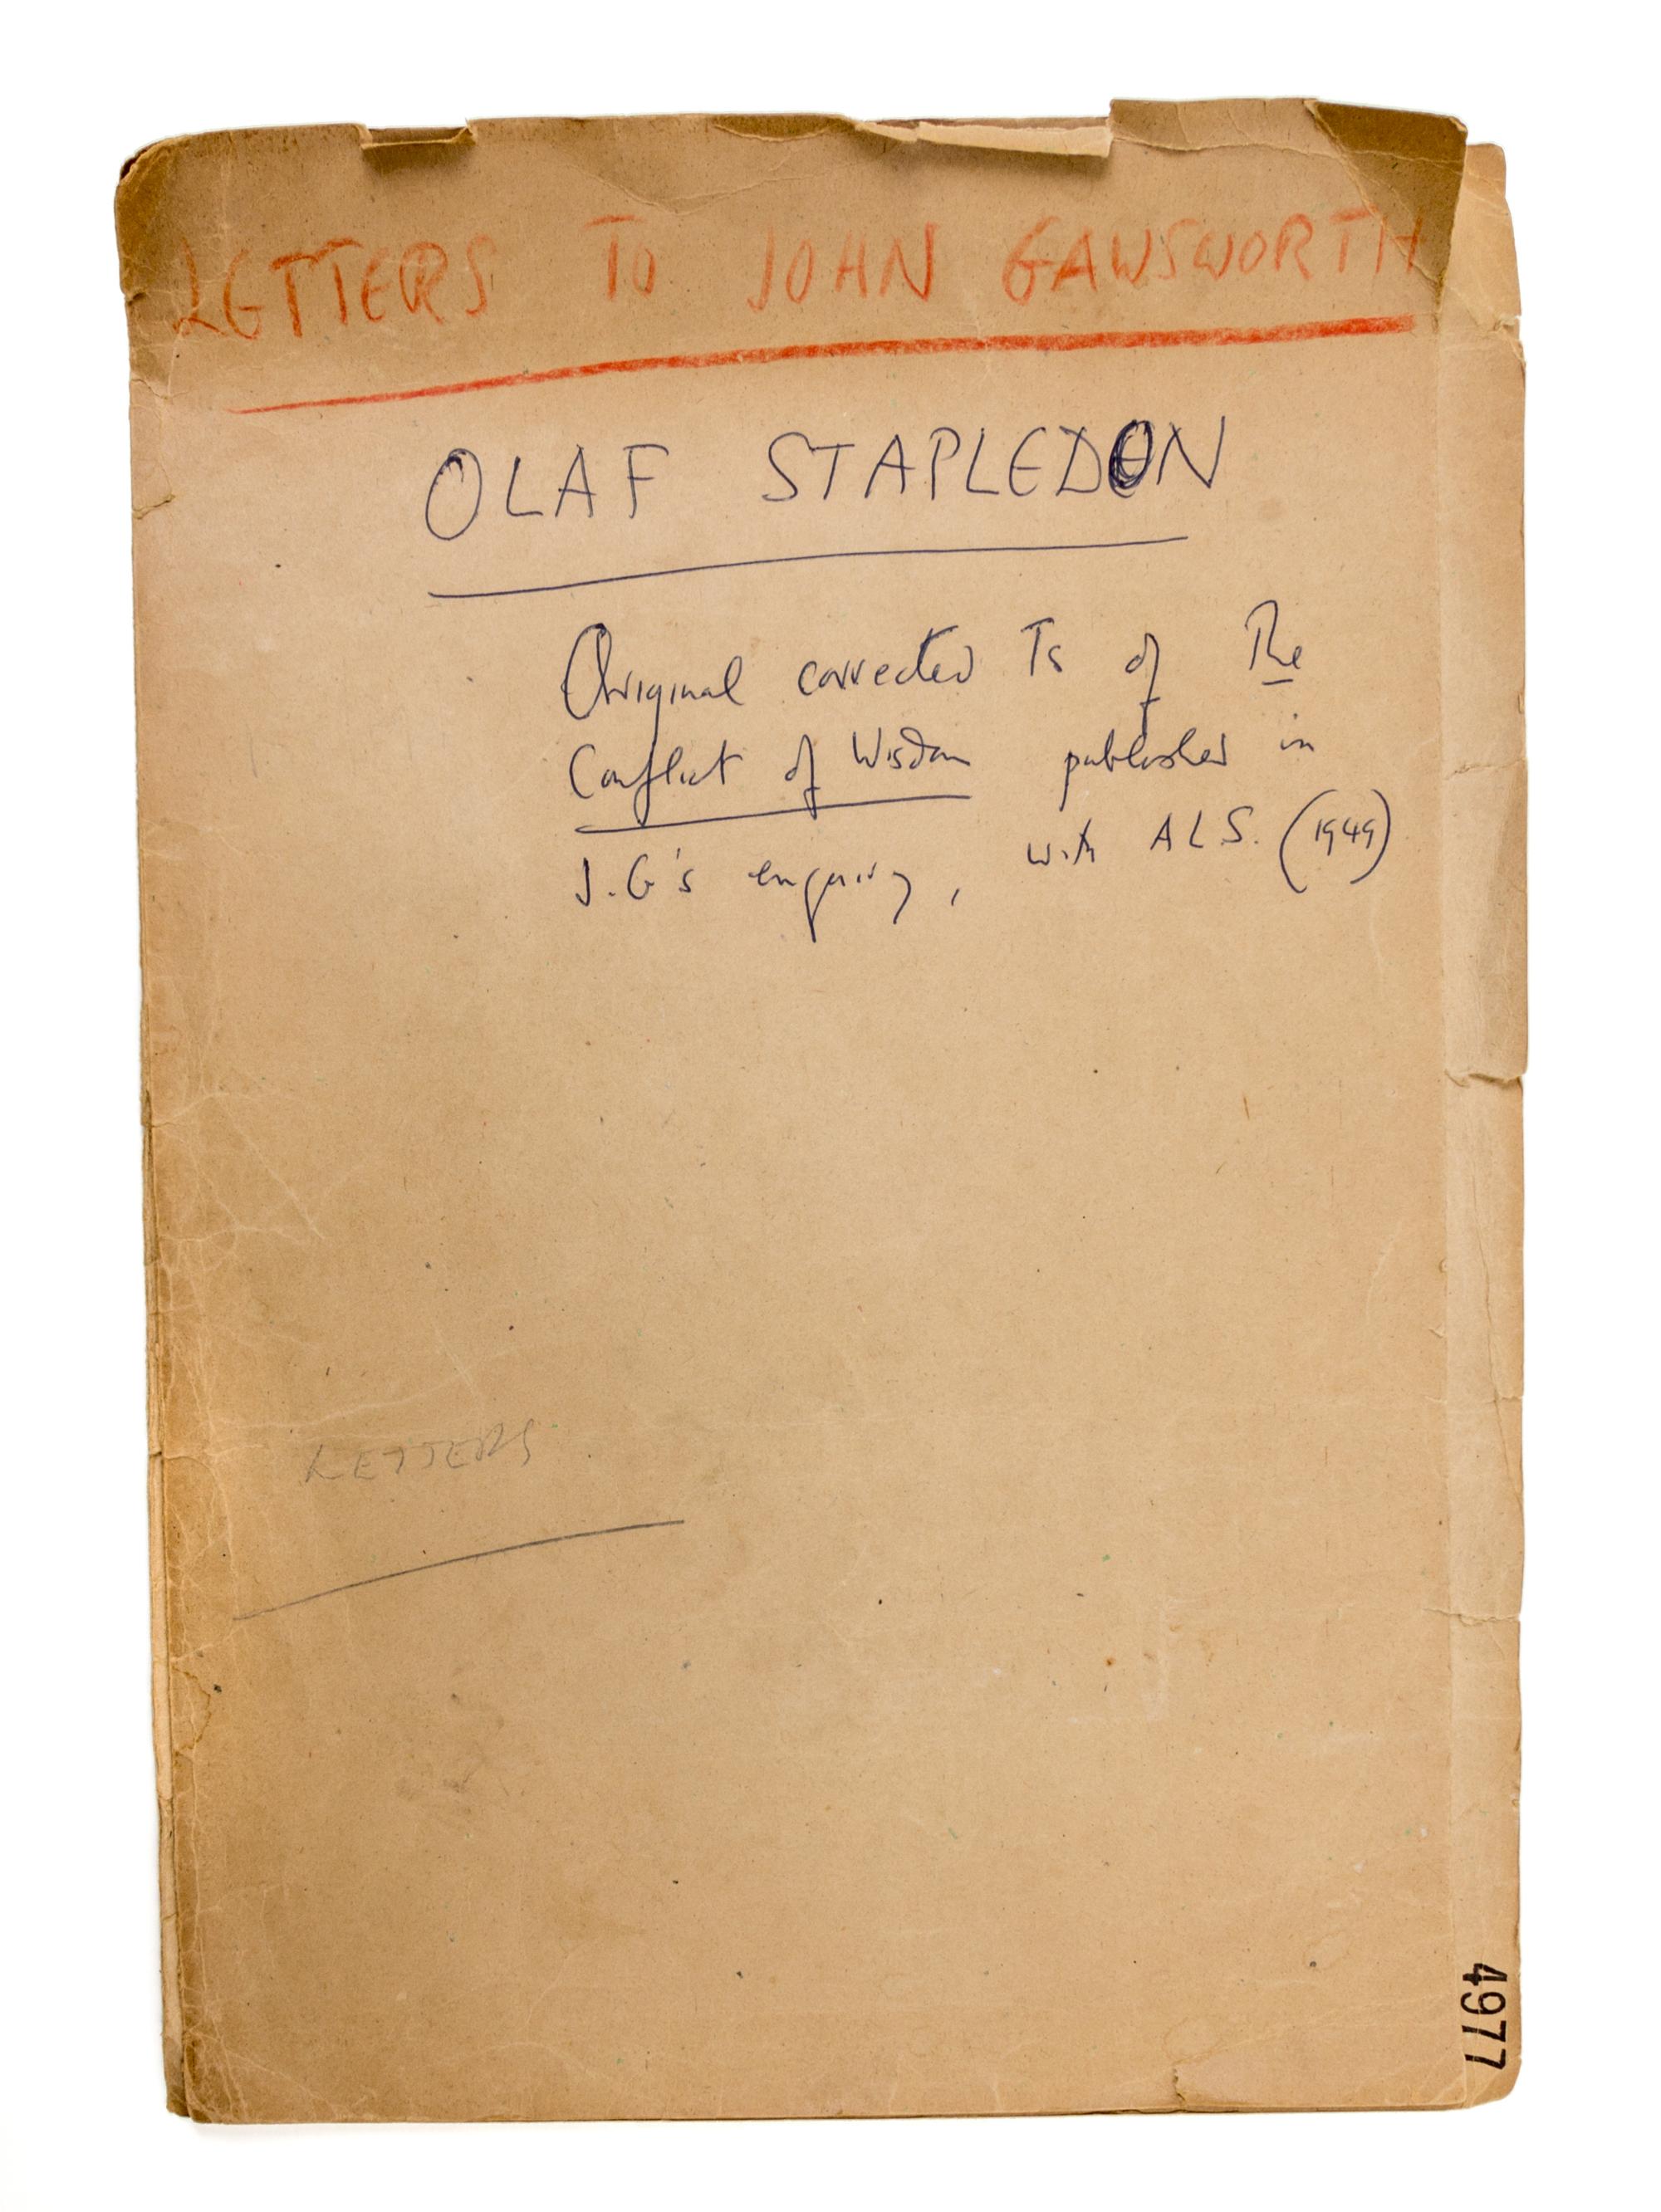 LETTERS TO JOHN GAWSWORTH
OLAF STAPLEDON
Original corrected Ts of The
Conflict of Wisdom published in
J.G's enquiry, with ALS. (1949)
LETTERS
4977